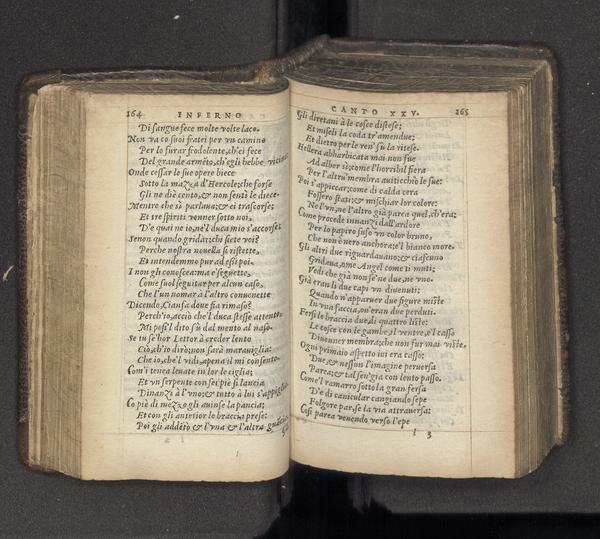 164 INFERNO
Di sangue fece molte volte laco.
Non va co suoi fratei per vn camino
Per lo furar frodolente, ch'ei fece
Del grande armēto, ch'egli hebbe vicino:
Onde cessar le sue opere biece
Sotto la mazza d'Hercole; che forse
Gli ne diè cento, & non sentì le diece.
Mentre che sì parlaua; & ei trascorse;
Et tre spiriti venner sotto noi,
D'e quai ne io, ne'l duca mio s'accorse;
Senon quando gridar; chi siete voi?
Perche nostra nouella si ristette,
Et intendemmo pur ad essi poi.
I non gli conoscea: ma e' seguette,
Come suol seguitar per alcun caso,
Che l'un nomar à l'altro conuenette
Dicendo, Cianfa doue fia rimaso?
Perch'io, acciò che'l duca stesse attento
Mi posi'l dito sù dal mento al naso.
Se tu se'hor Lettor à creder lento
Ciò, ch'io dirò; non sarà marauiglia:
Che io, che'l vidi, apena il mi consento.
Com'i tenea leuate in lor le ciglia;
Et vn serpente con sei piè si lancia
Dinanzi à l'vno; & tutto à lui s'appiglia.
Co piè di mezzo gli auinse la pancia;
Et con gli anterior le braccia prese:
Poi gli addētò & l'vna & l'altra guancia.
CANTO XXV. 165
Gli diretani à le cosce distese;
Et miseli la coda tr'amendue;
Et dietro per le ren' sù la ritese.
Hellera abbarbicata mai non fue
Ad alber sì; come l'horribil fiera
Per l'altru' membra auiticchiò le sue:
Poi s'appiccar; come di calda cera
Fossero stati; & mischiar lor colore:
Ne l'vn, ne l'altro già parea quel, ch'era;
Come procede innanzi dall'ardore
Per lo papiro suso vn color bruno,
Che non è nero anchora; e'l bianco more.
Gli altri due riguardauano; & ciascuno
Gridaua, ome Angel come ti muti;
Vedi che già non se' ne due, ne vno.
Già eran li due capi vn diuenuti;
Quando n'apparuer due figure miste
In vna faccia, ou'eran due perduti.
Fersi le braccia due, di quattro liste:
Le cosce con le gambe, il ventre, e'l casso
Diuenner membra; che non fur mai viste.
Ogni primaio aspetto iui era casso:
Due & nessun l'imagine peruersa
Parea; & tal sen'gia con lento passo.
Come'l ramarro sotto la gran fersa
D'e dì canicular cangiando sepe
Folgore par, se la via attrauersa:
Così parea venendo verso l'epe